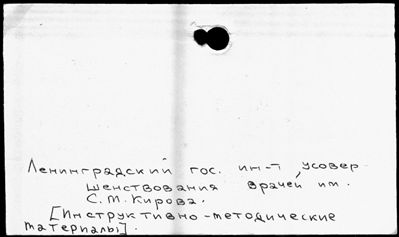 Ленинградский гос. ин-т усовер-
шенствования врачей им.
С.М. Кирова.
[Инструктивно-методические
материалы].